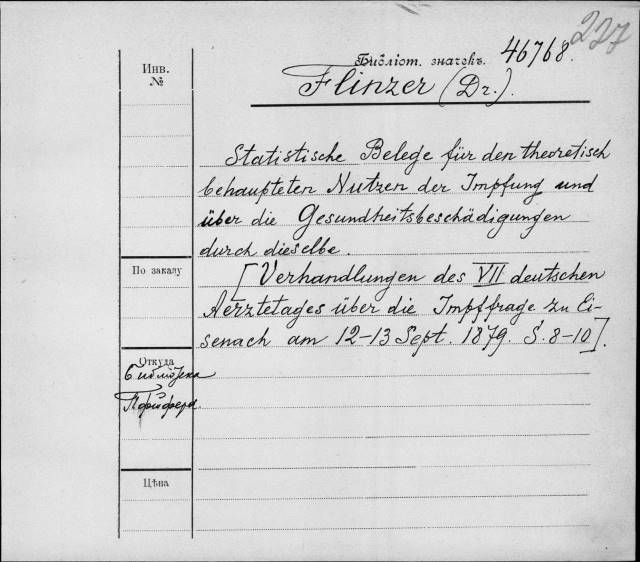 227
Библіот. значекъ. 46768.
Flinzer (Dr.).
Инв.
№
Statistische Belege für den theoretisch
behaupteten Nutzen der Impfung und
über die Gesundheitsbeschädigungen
durch dieselbe.
По заказу
[Verhandlungen des VII deutschen
Aerztetages über die Impffrage zu Ei-
senach am 12-13 Sept. 1879. S. 8-10].
Откуда
Библіотека
Пфейфера.
Цѣна